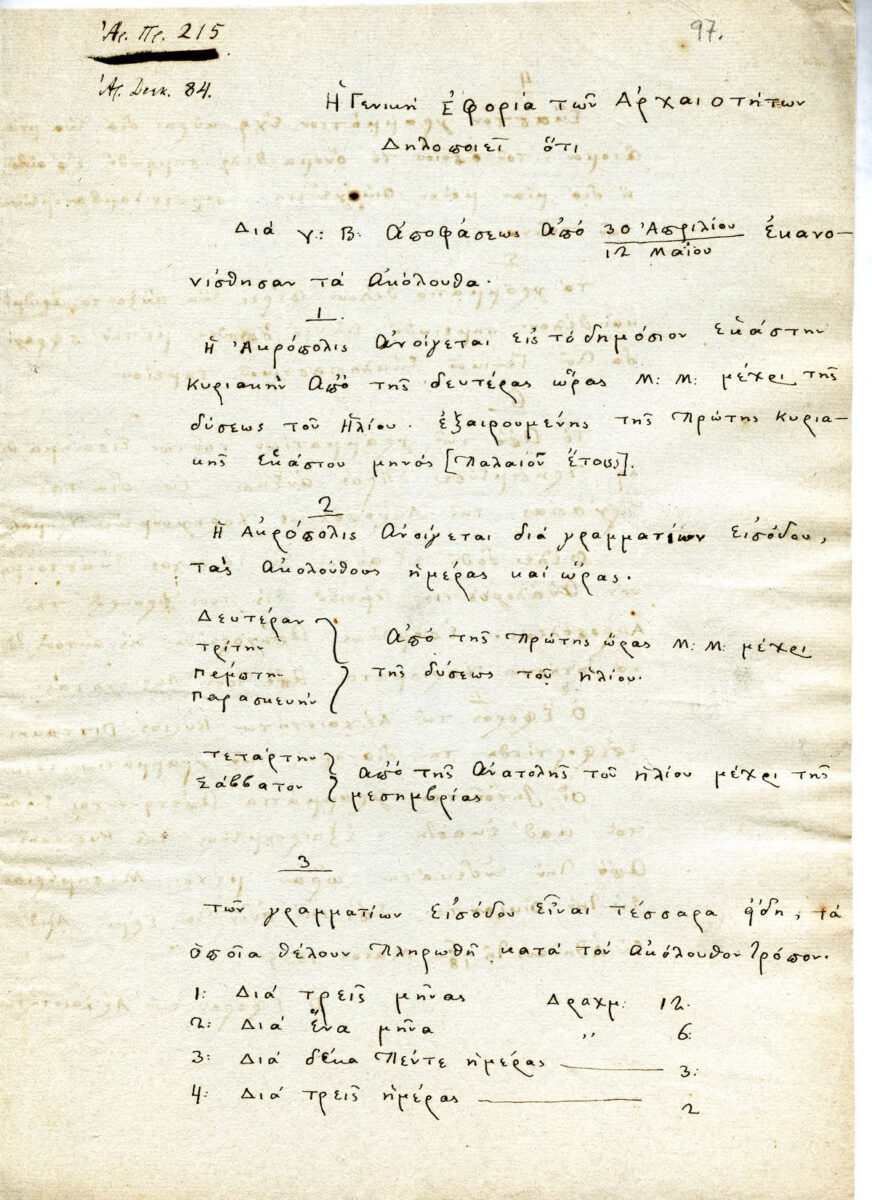 Ἀρ. Πρ. 215
97.
Ἀρ. Διεκ. 84.
Ἡ Γενική Ἐφορία τῶν Ἀρχαιοτήτων
Δηλοποιεῖ ὅτι
Διά γ: Β: ἀποφάσεως ἀπό 30 Ἀπριλίου ἐκανο-
12 Μαΐου
νίσθησαν τά ἀκόλουθα.
1.
Ἡ Ἀκρόπολις ἀνοίγεται εἰς τό δημόσιον ἑκάστην
Κυριακήν ἀπό τῆς δευτέρας ὥρας Μ: Μ: μέχρι τῆς
δύσεως τοῦ Ἡλίου. ἐξαιρουμένης τῆς Πρώτης Κυρια-
κῆς ἑκάστου μηνός [Παλαιοῦ Ἔτους].
2
Ἡ Ἀκρόπολις ἀνοίγεται διά γραμματίων εἰσόδου,
τάς ἀκολούθους ἡμέρας καί ὥρας.
Δευτέραν
τρίτην
πέμπτην
παρασκευήν
ἀπό τῆς Πρώτης ὥρας Μ: Μ: μέχρι
τῆς δύσεως τοῦ ἡλίου.
τετάρτην
Σάββατον
ἀπό τῆς ἀνατολῆς τοῦ ἡλίου μέχρι τῆς
μεσημβρίας
3
τῶν γραμματίων εἰσόδου εἶναι τέσσαρα ἤδη, τά
ὁποῖα θέλουν Πληρωθῆ κατά τόν ἀκόλουθον τρόπον.
1: Διά τρεῖς μῆνας Δραχμ: 12.
2: Διά ἕνα μῆνα ,, 6.
3: Διά δέκα Πέντε ἡμέρας — 3.
4: Διά τρεῖς ἡμέρας — 2